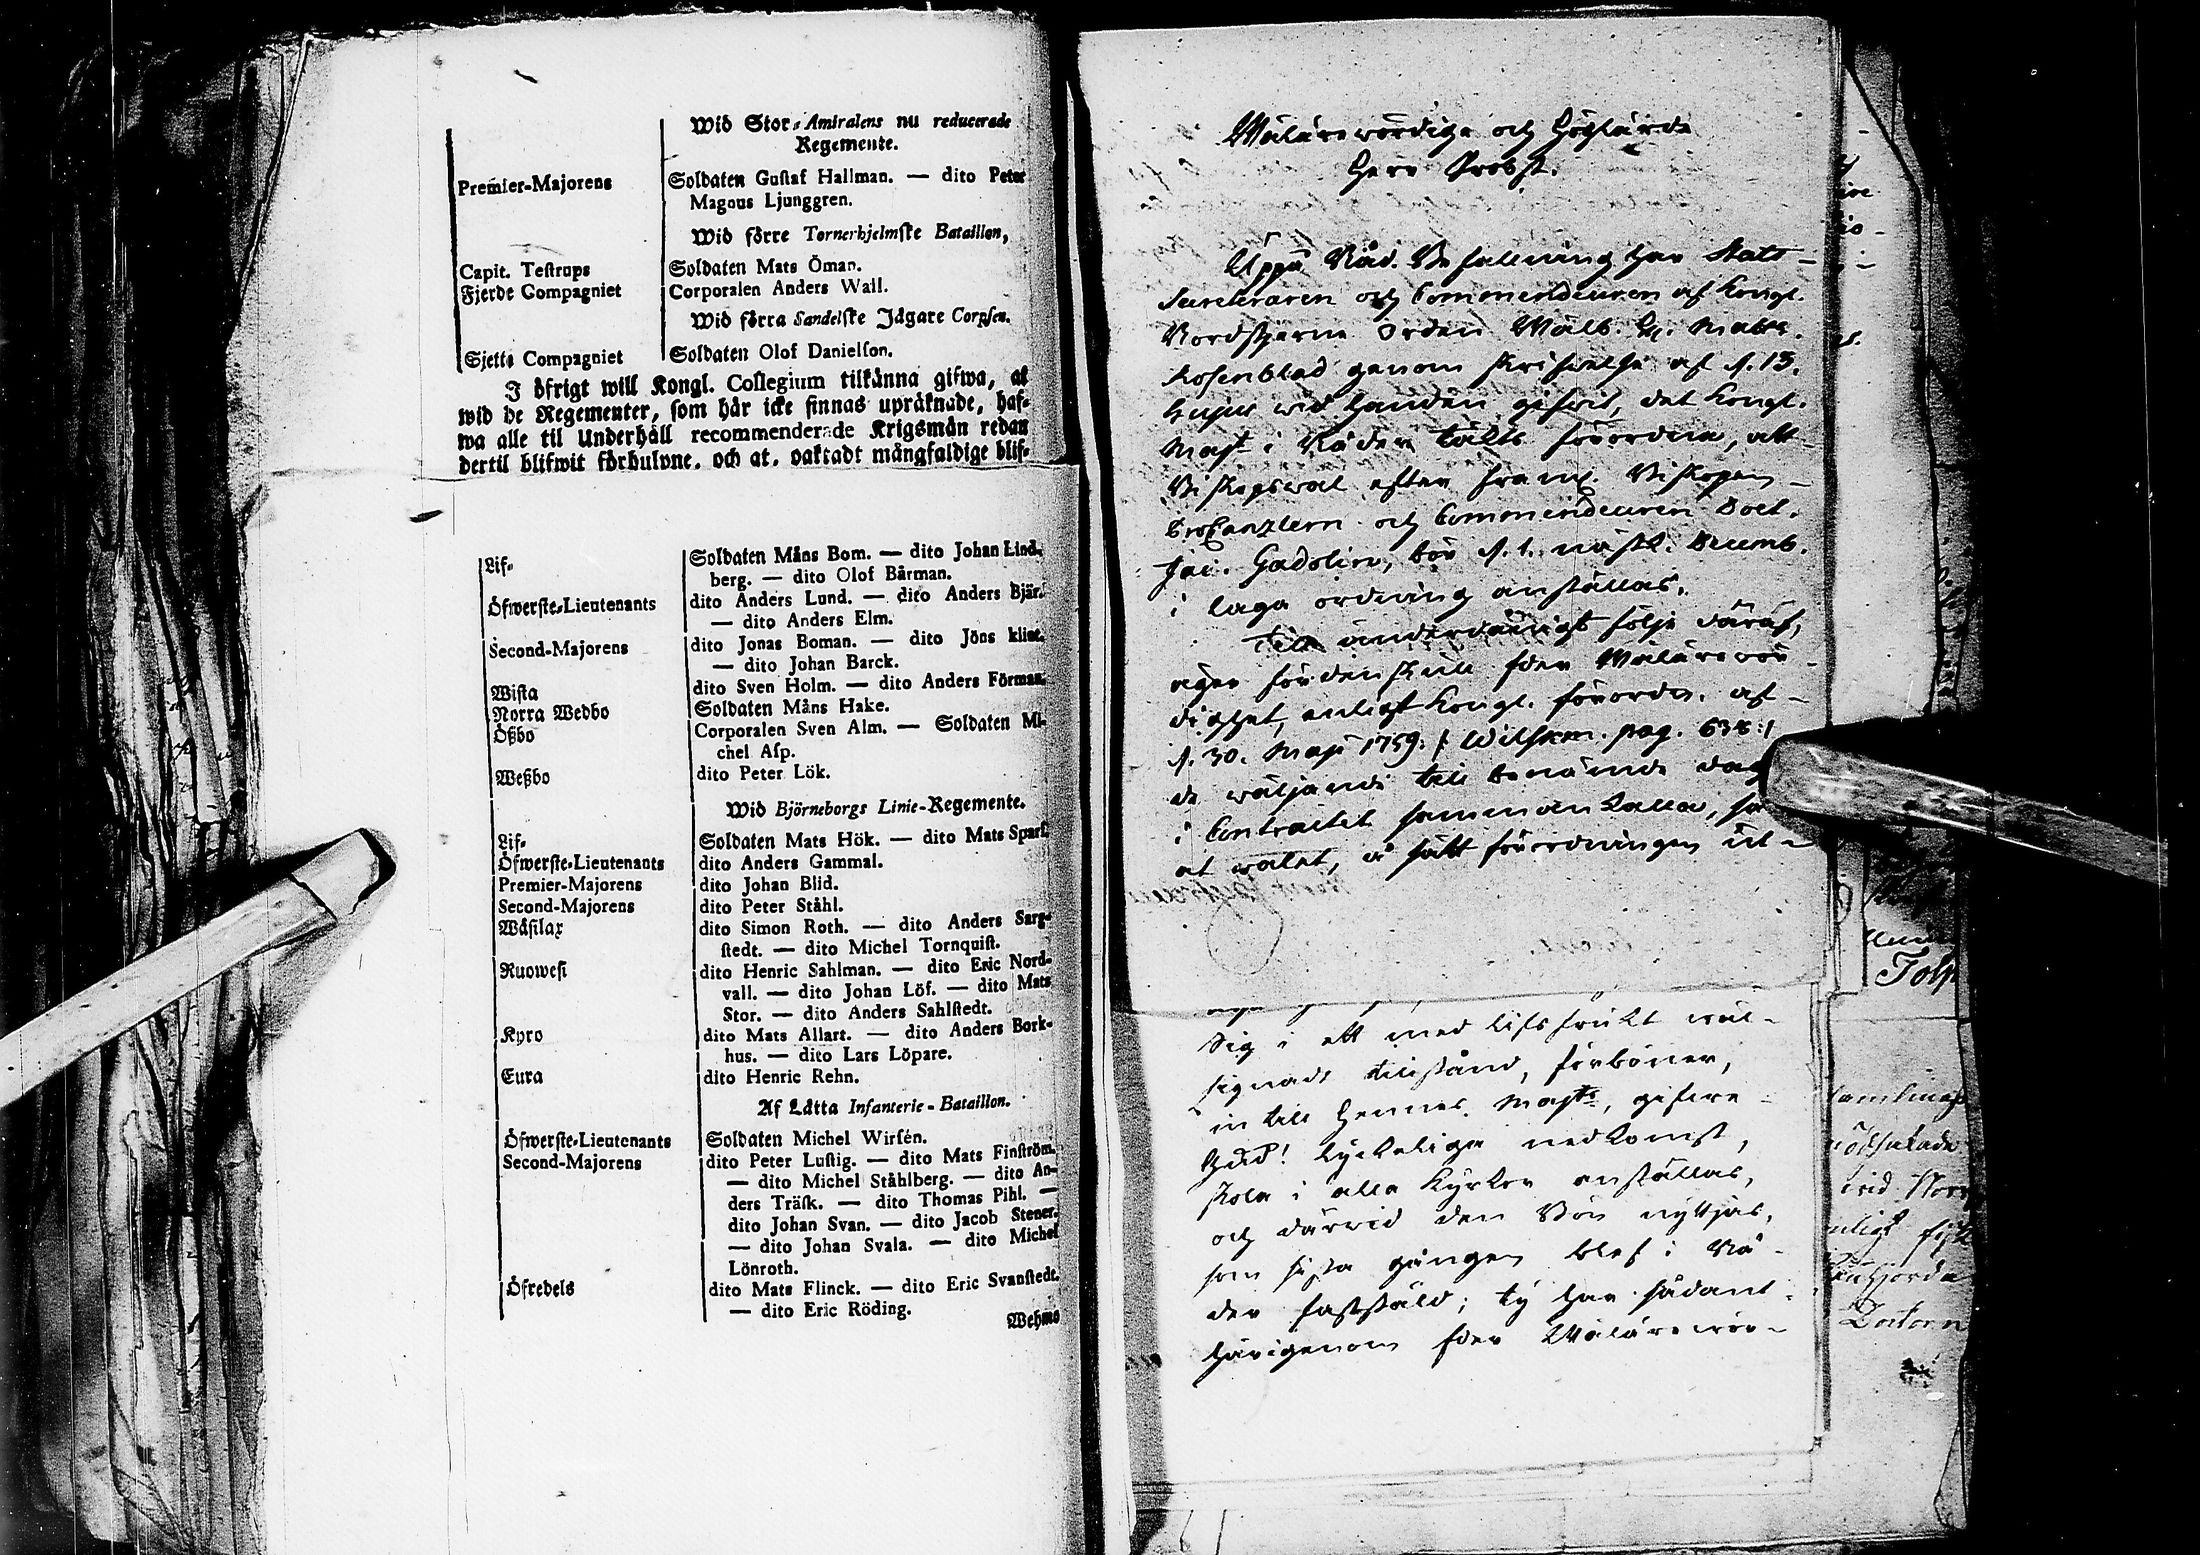 Wid Stor-Amiralens nu reducerade
Regemente.
Premier-Majorens Soldaten Gustaf Hallman. — dito Peter
Magnus Ljunggren.
Wid förre Tornerhjelmske Bataillon,
Capit. Testrups Soldaten Mats Öman.
Fjerde Compagniet Corporalen Anders Wall.
Wid förra Sandelske Jägare Corpsen.
Sjette Compagniet Soldaten Olof Danielson.
I öfrigt will Kongl. Collegium tilkänna gifwa, at
wid de Regementer, som här icke finnas upräknade, haf-
wa alle til Underhåll recommenderade Krigsmän redan
dertil blifwit förhulpne, och at, oaktadt mångfaldige blif-
Lif- Soldaten Måns Bom. — dito Johan Lind-
berg. — dito Olof Bärman.
Öfwerste-Lieutenants dito Anders Lund. — dito Anders Bjär.
— dito Anders Elm.
Second-Majorens dito Jonas Boman. — dito Jöns klint.
— dito Johan Barck.
Wista dito Sven Holm. — dito Anders Förman.
Norra Wedbo Soldaten Måns Hake.
Ößbo Corporalen Sven Alm. — Soldaten Mi-
chel Asp.
Weßbo dito Peter Lök.
Wid Björneborgs Linie-Regemente.
Lif- Soldaten Mats Hök. — dito Mats Sparf.
Öfwerste-Lieutenants dito Anders Gammal.
Premier-Majorens dito Johan Blid.
Second-Majorens dito Peter Ståhl.
Wäsilax dito Simon Roth. — dito Anders Sarg-
stedt. — dito Michel Tornquist.
Ruowesi dito Henric Sahlman. — dito Eric Nord-
vall. — dito Johan Löf. — dito Mats
Stor. — dito Anders Sahlstedt.
Kyro dito Mats Allart. — dito Anders Bork-
hus. — dito Lars Löpare.
Eura dito Henric Rehn.
Af Lätta Infanterie-Bataillon.
Öfwerste-Lieutenants Soldaten Michel Wirsén.
Second-Majorens dito Peter Lustig. — dito Mats Finström.
— dito Michel Ståhlberg. — dito An-
ders Träsk. — dito Thomas Pihl. —
dito Johan Svan. — dito Jacob Stener.
— dito Johan Svala. — dito Michel
Lönroth.
Öfredels dito Mats Flinck. — dito Eric Svanstedt.
— dito Eric Röding.
Wehmo
Wälärewördige och Höglärde
Herr Probst.
Uppå Nåd. Befallning har Stats-
Secreteraren och Commendeuren af Kongl.
Nordstjerne Orden Wälb. Hr. Mathr.
Rosenblad genom skrifwelse af d. 13.
hujus wid handen gifwit, det Kongl.
Majt i Nåder täckts förordna, att
Biskopswal efter framl. Biskopen
ProCanzlern och Commendeuren Doct.
Jac. Gadolin, bör d. 1. nästk. Decemb.
i laga ordning anställas.
Till underdånigst följe däraf,
äger fördenskull Eder Wälärewör-
dighet, enligt Kongl. förordn. af
d. 30. Maji 1759. /: Wilskm. pag. 638:/
de wäljande till benämnde dag
i Contractet sammankalla, 
at walet, å sätt förordningen ut-
Sig i ett med lifsfrukt wäl-
signadt tillstånd, förböner,
in till Hennes Majts, gifwe
Gud! lyckeliga nedkomst,
skola i alla Kyrkor anställas,
och därwid den Bön nyttjas,
som sista gången blef i Nå-
der fastställd; ty har sådant
härigenom Eder Wälärewör-